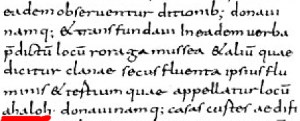 eademobseruentur ditionib; donaui
namq; & transfundaui In eadem uerba
p̄dictū locū roragamussea & aliū quae
dicitur clanae secus fluenta ipsius flu
minis & testium quae appellatur locū
ahaloh · donaui namq; casas custes aedifi